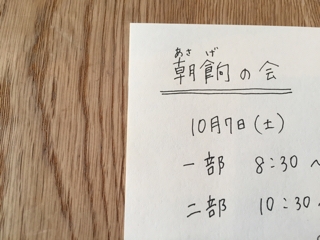 あさげ
朝餉の会
10月7日(土)
一部 8:30〜
二部 10:30〜